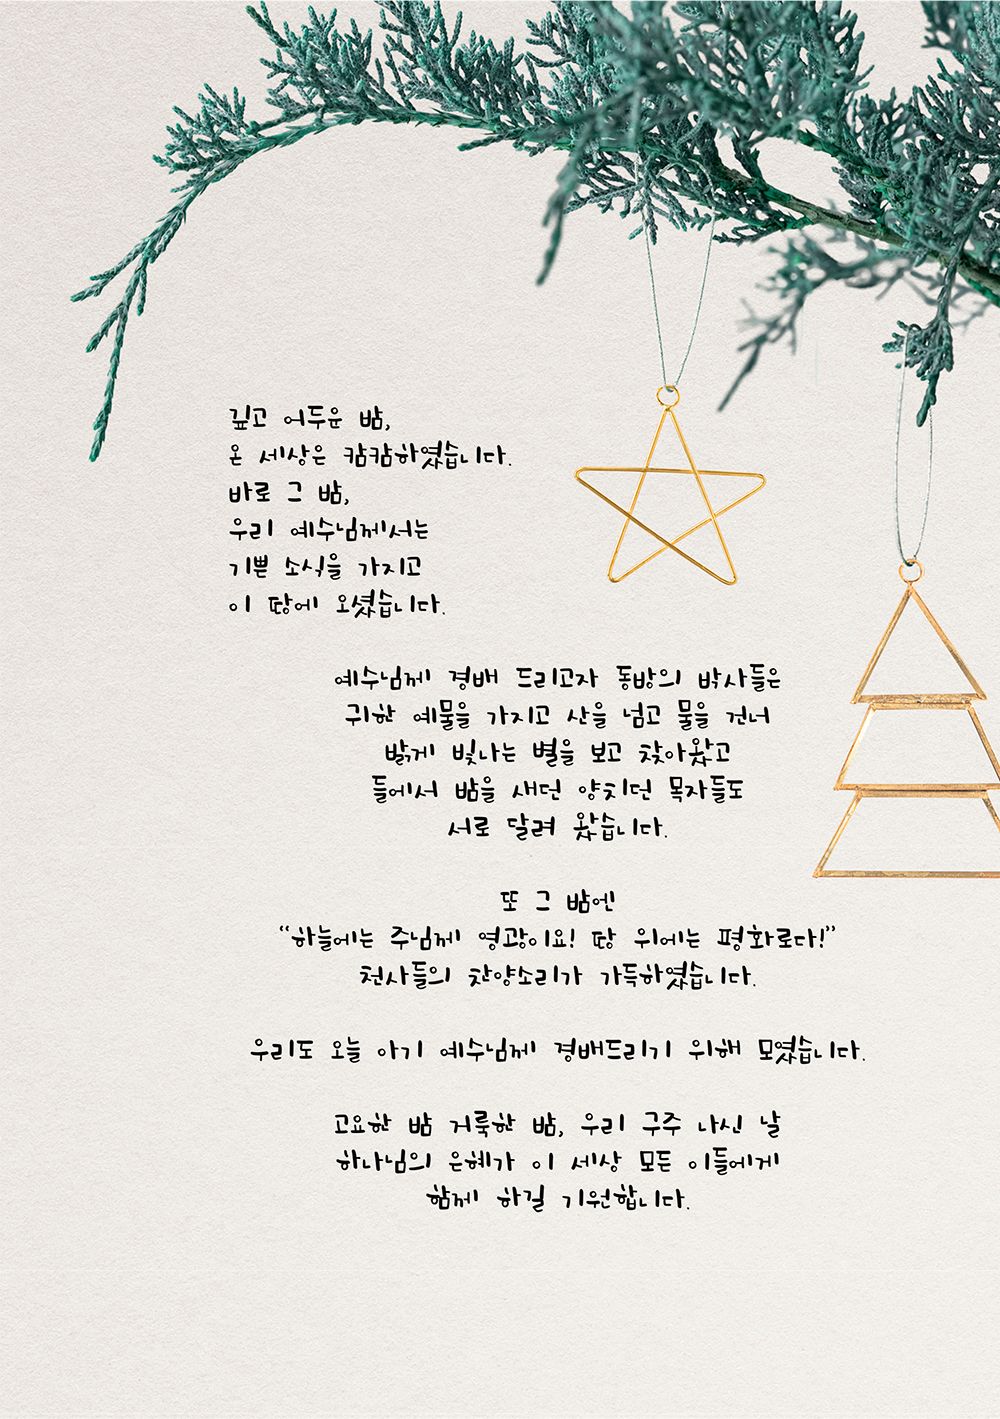 깊고 어두운 밤,
온 세상은 캄캄하였습니다.
바로 그 밤,
우리 예수님께서는
기쁜 소식을 가지고
이 땅에 오셨습니다.
예수님께 경배 드리고자 동방의 박사들은
귀한 예물을 가지고 산을 넘고 물을 건너
밝게 빛나는 별을 보고 찾아왔고
들에서 밤을 새던 양치던 목자들도
서로 달려 왔습니다.
또 그 밤에
“하늘에는 주님께 영광이요! 땅 위에는 평화로다!”
천사들의 찬양소리가 가득하였습니다.
우리도 오늘 아기 예수님께 경배드리기 위해 모였습니다.
고요한 밤 거룩한 밤, 우리 구주 나신 날
하나님의 은혜가 이 세상 모든 이들에게
함께 하길 기원합니다.